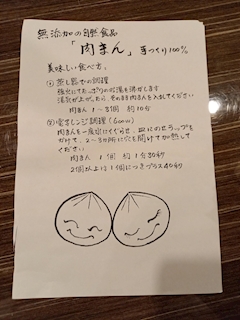 無添加の自然食品
「肉まん」手づくり100%
美味しい食べ方。
① 蒸し器での調理
強火にてたっぷりのお湯を沸かします
湯気が上がったら、そのまま肉まんを入れてください
肉まん 1~3個 約10分
② 電子レンジ調理(600w)
肉まんを一度水にくぐらせ 皿にのせラップを
かけて、2~3カ所に穴を開けてから熱して
ください
肉まん 1個 約1分30秒
2個以上は1個につきプラス40秒